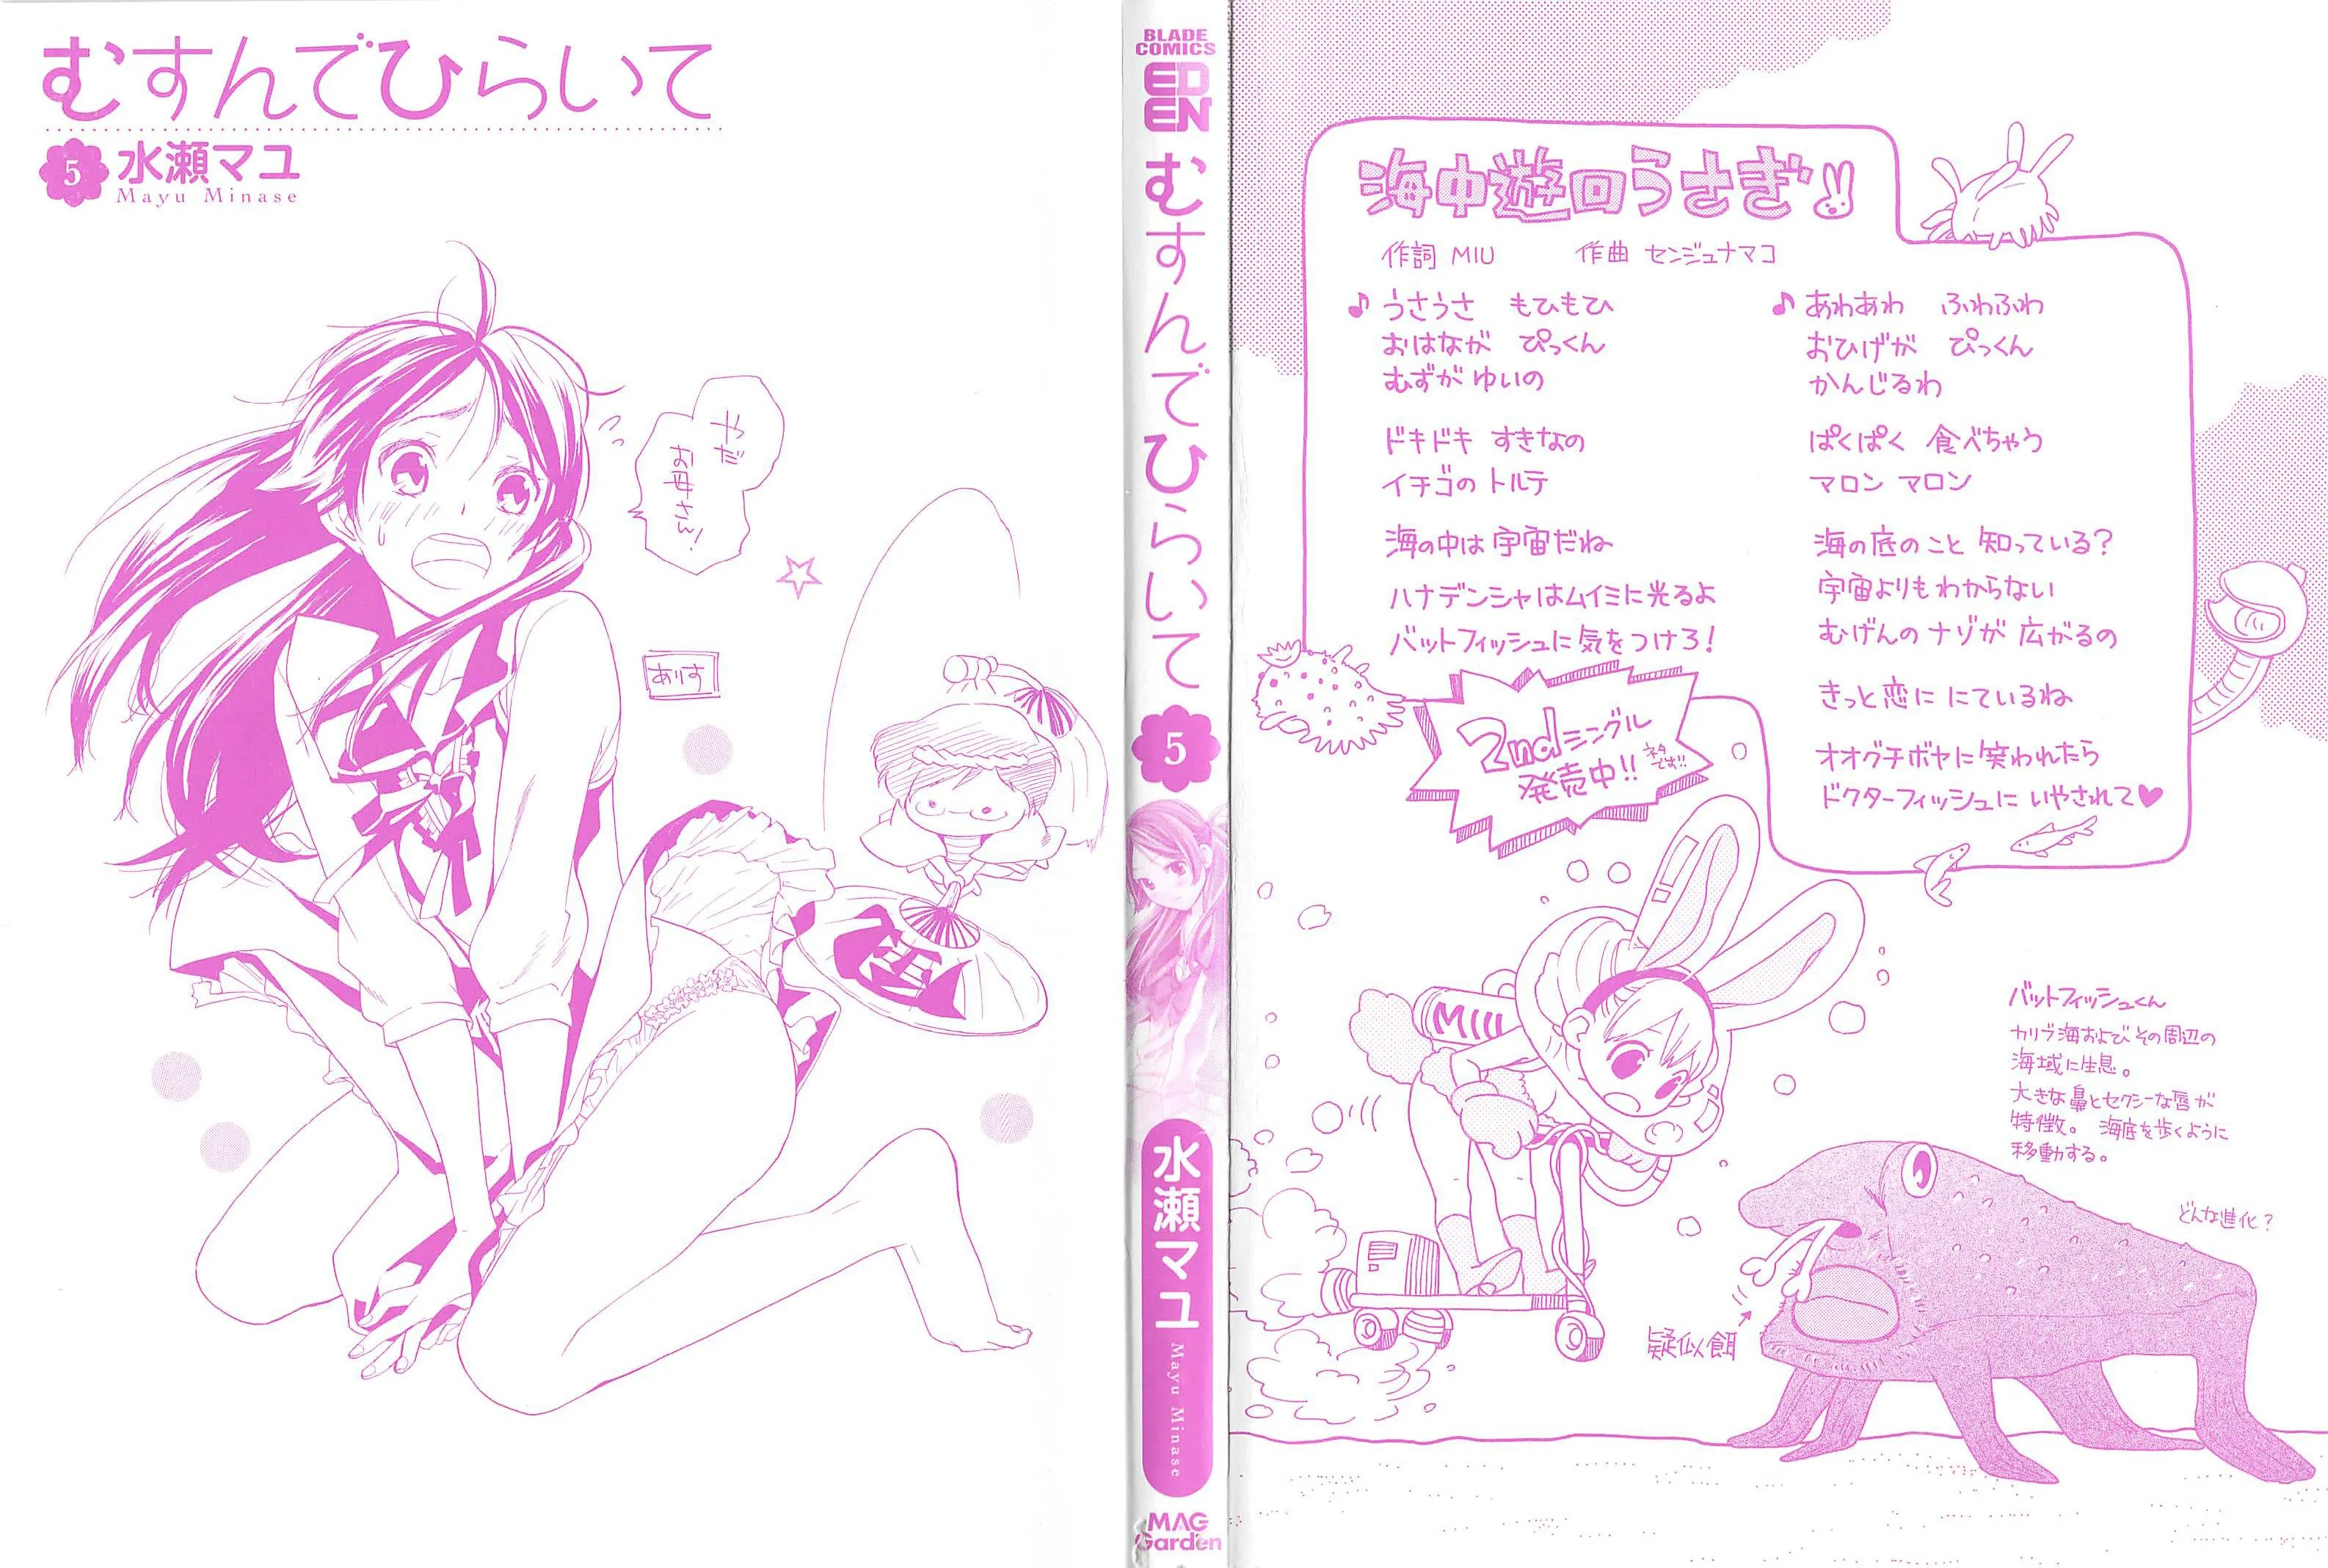 むすんでひらいて
5 水瀬マユ
Mayu Minase
やだ
お母さん!
ありす
BLADE
COMICS
EDEN
むすんでひらいて
5
水瀬マユ
Mayu Minase
MAG
Garden
海中遊回うさぎ
作詞 MIU 作曲 センジュナマコ
♪ うさうさ もひもひ
おはなが ぴっくん
むずがゆいの
ドキドキ すきなの
イチゴの トルテ
海の中は 宇宙だね
ハナデンシャはムイミに光るよ
バットフィッシュに気をつけろ!
♪ あわあわ ふわふわ
おひげが ぴっくん
かんじるわ
ぱくぱく 食べちゃう
マロン マロン
海の底のこと 知っている?
宇宙よりもわからない
むげんのナゾが 広がるの
きっと恋に にているね
オオグチボヤに笑われたら
ドクターフィッシュに いやされて♥
2ndシングル
発売中!!
ネタ
です!!
MIU
バットフィッシュくん
カリブ海およびその周辺の
海域に生息。
大きな鼻とセクシーな唇が
特徴。 海底を歩くように
移動する。
どんな進化?
疑似餌